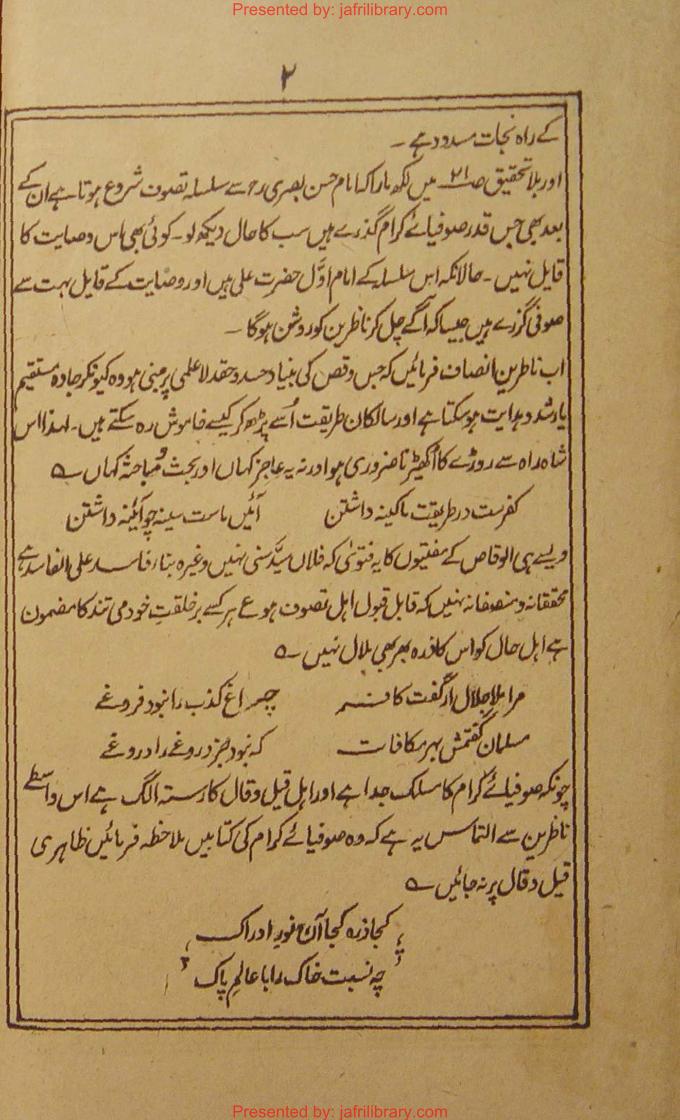 Presented by: jafrilibrary.com
۲
کے راہ نجات مسدود ہے ۔
اور بلا تحقیق ص۲۱ میں لکھ مارا کہ امام حسن بصری رح سے سلسلہ تصوف شروع ہوتا ہے ان کے
بعد بھی جس قدر صوفیائے کرام گذرے ہیں سب کا حال دیکھ لو ۔ کوئی بھی اس وصایت کا
قایل نہیں ۔ حالانکہ اس سلسلہ کے امام اوّل حضرت علی ہیں اور وصایت کے قایل بہت سے
صوفی گزرے ہیں جیسا کہ آگے چل کر ناظرین کو روشن ہوگا ۔
اب ناظرین انصاف فرمائیں کہ جس وقص کی بنیاد حسد و حقد لاعلمی پر مبنی ہو وہ کیونکر جادہ مستقیم
یا رشد و ہدایت ہو سکتا ہے اور سالکان طریقت اُسے پڑھ کر کیسے خاموش رہ سکتے ہیں ۔ لہذا اس
شاہ راہ سے روڑے کا اکھیڑنا ضروری ہوا ورنہ یہ عاجز کہاں اور بحث و مباحثہ کہاں ؎
کفرست در طریقت ما کینہ داشتن آئیں ماست سینہ چو آئینہ داشتن
ویسے ہی الوقاص کے مفتیوں کا یہ فتویٰ کہ فلاں سیّد سنی نہیں وغیرہ بناء فاسد علی الفاسد ہے
محققانہ و منصفانہ نہیں کہ قابل قبول اہل تصوف ہو ع ہر کسے بر خلقتِ خود می تند کا مضمون
ہے اہل حال کو اس کا ذرہ بھر بھی ملال نہیں ؎
مرا ملا جلال ار گفت کافر چراغ کذب را نبود فروغے
مسلمان گفتمش بہر مکافات کہ نبود جز دروغے را دروغے
چونکہ صوفیائے کرام کا مسلک جدا ہے اور اہل قیل و قال کا رستہ الگ ہے اس واسطے
ناظرین سے التماس یہ ہے کہ وہ صوفیائے کرام کی کتابیں ملاحظہ فرمائیں ظاہری
قیل و قال پر نہ جائیں ؎
کجا ذرہ کجا آں نور ادراک
چہ نسبت خاک را با عالمِ پاک
Presented by: jafrilibrary.com